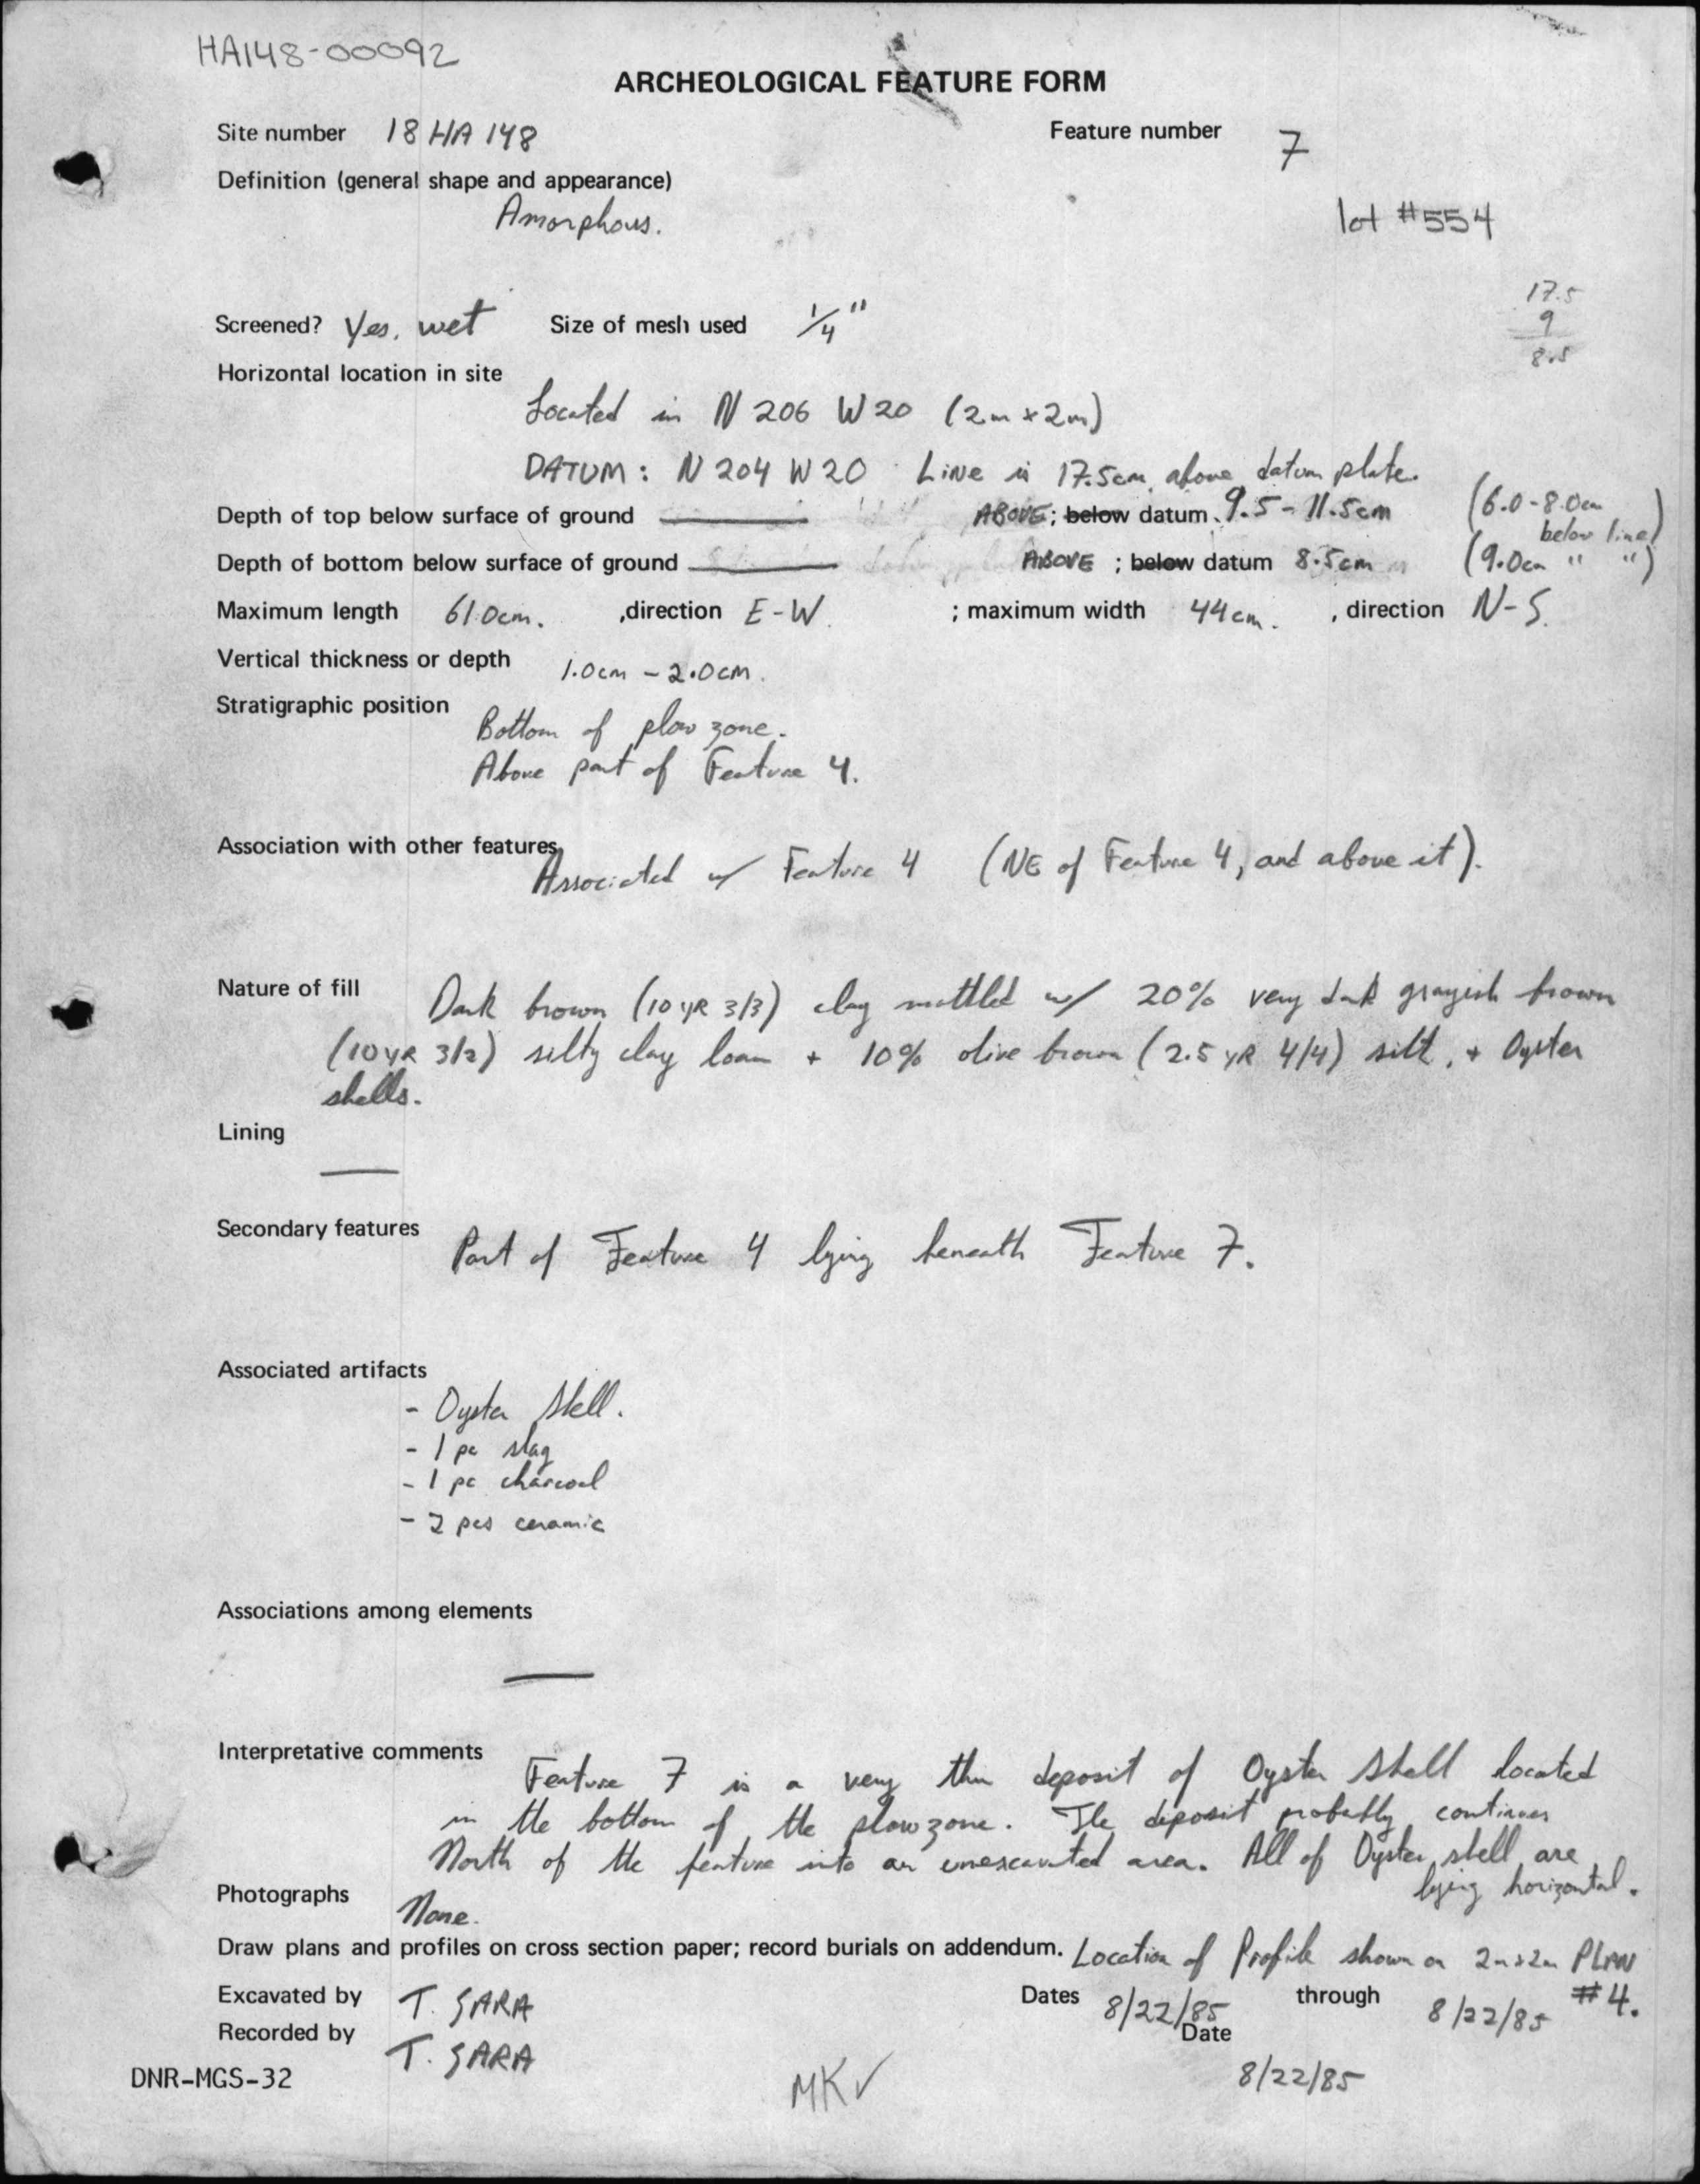 HA148-00092
ARCHEOLOGICAL FEATURE FORM
Site number 18 HA 148 Feature number 7
Definition (general shape and appearance)
Amorphous.
lot #554
17.5
9
8.5
Screened? Yes, wet Size of mesh used 1/4"
Horizontal location in site
Located in N 206 W 20 (2m x 2m)
DATUM: N 204 W 20 Line is 17.5cm above datum plate.
Depth of top below surface of ground —— ABOVE; below datum 9.5 - 11.5cm (6.0-8.0cm below line)
Depth of bottom below surface of ground —— ABOVE ; below datum 8.5cm (9.0cm " ")
Maximum length 61.0cm. ,direction E-W. ; maximum width 44cm. , direction N-S.
Vertical thickness or depth 1.0cm - 2.0cm.
Stratigraphic position
Bottom of plow zone.
Above part of Feature 4.
Association with other features
Associated w/ Feature 4 (NE of Feature 4, and above it).
Nature of fill Dark brown (10 YR 3/3) clay mottled w/ 20% very dark grayish brown
(10 YR 3/2) silty clay loam + 10% olive brown (2.5 YR 4/4) silt, + Oyster
shells.
Lining
——
Secondary features Part of Feature 4 lying beneath Feature 7.
Associated artifacts
- Oyster Shell.
- 1 pc slag
- 1 pc charcoal
- 2 pcs ceramic
Associations among elements
——
Interpretative comments Feature 7 is a very thin deposit of Oyster Shell located
in the bottom of the plow zone. The deposit probably continues
North of the feature into an unexcavated area. All of Oyster shell are
lying horizontal.
Photographs None.
Draw plans and profiles on cross section paper; record burials on addendum. Location of Profile shown on 2m x 2m PLAN
#4.
Excavated by T. SARA Dates 8/22/85 through 8/22/85
Recorded by T. SARA Date 8/22/85
DNR-MGS-32
MK✓